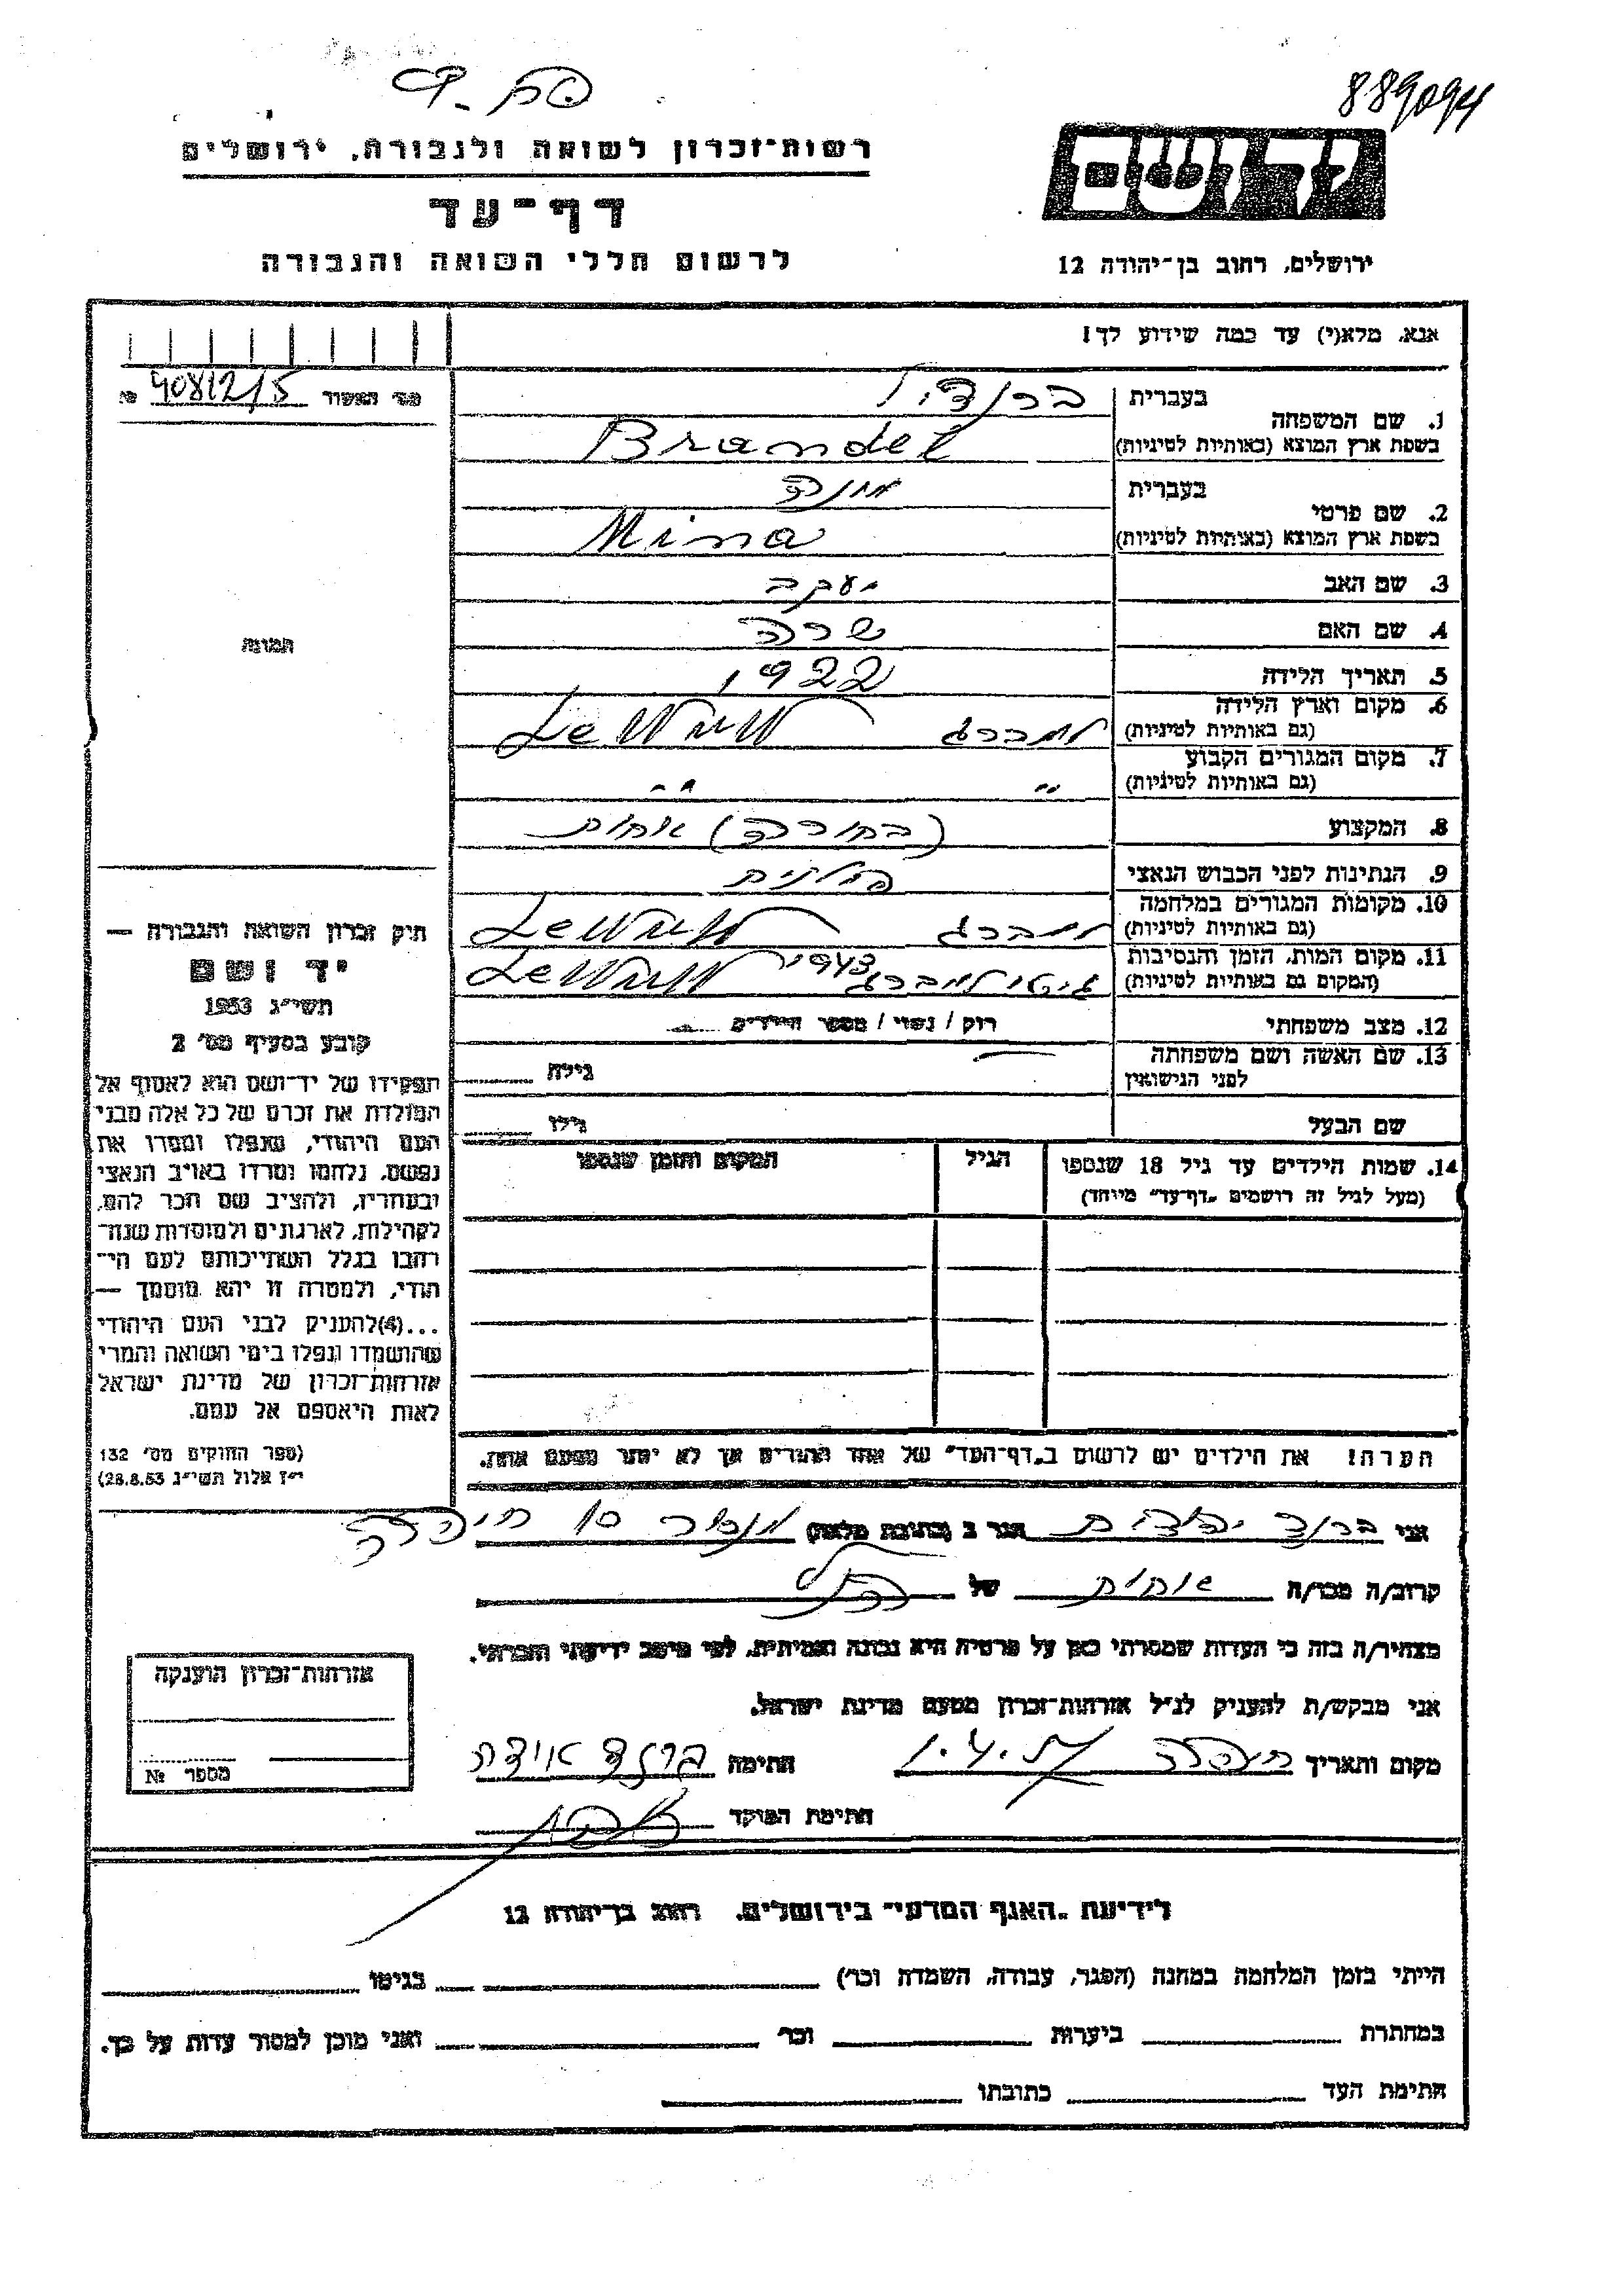 889094
רשות־זכרון לשואה ולגבורה, ירושלים
דף־עד
לרשום חללי השואה והגבורה
ירושלים, רחוב בן־יהודה 12
אנא, מלא(י) עד כמה שידוע לך!
מס׳ האשור 40812/5 №
1. שם המשפחה בעברית ברנדיל
בשפת ארץ המוצא (באותיות לטיניות) Brandel
2. שם פרטי בעברית מינה
בשפת ארץ המוצא (באותיות לטיניות) Mina
3. שם האב יעקב
4. שם האם שרה
5. תאריך הלידה 1922
6. מקום וארץ הלידה
(גם באותיות לטיניות) למברג
7. מקום המגורים הקבוע
(גם באותיות לטיניות) " "
8. המקצוע (בחורה) אחות
9. הנתינות לפני הכבוש הנאצי פולנית
10. מקומות המגורים במלחמה
(גם באותיות לטיניות) למברג
11. מקום המות, הזמן והנסיבות
(המקום גם באותיות לטיניות) גיטו למברג 1943
12. מצב משפחתי רוק / נשוי / מספר הילדים
13. שם האשה ושם משפחתה
לפני הנישואין גילה
שם הבעל גילו
14. שמות הילדים עד גיל 18 שנספו הגיל המקום והזמן שנספו
(מעל לגיל זה רושמים "דף־עד" מיוחד)
הערה! את הילדים יש לרשום ב"דף־העד" של אחד ההורים אך לא יותר מפעם אחת.
התמונה
תיק זכרון השואה והגבורה —
יד ושם
תשי״ג 1953
קובע בסעיף מס׳ 2
תפקידו של יד־ושם הוא לאסוף אל
המולדת את זכרם של כל אלה מבני
העם היהודי, שנפלו ומסרו את
נפשם, נלחמו ומרדו באויב הנאצי
ובעוזריו, ולהציב שם וזכר להם,
לקהילות, לארגונים ולמוסדות שנח־
רבו בגלל השתייכותם לעם הי־
הודי, ולמטרה זו יהא מוסמך —
...(4)להעניק לבני העם היהודי
שהושמדו ונפלו בימי השואה והמרי
אזרחות־זכרון של מדינת ישראל
לאות היאספם אל עמם.
(ספר החוקים מס׳ 132
י״ז אלול תשי״ג 28.8.53)
אני ברנד הגר ב (כתובת מלאה) 10 חיפה
קרוב/ה מכר/ה אחות של הנ״ל
מצהיר/ה בזה כי העדות שמסרתי כאן על פרטיה היא נכונה ואמיתית, לפי מיטב ידיעתי והכרתי.
אני מבקש/ת להעניק לנ״ל אזרחות־זכרון מטעם מדינת ישראל.
מקום ותאריך חיפה חתימה ברנד
חתימת הפוקד
אזרחות־זכרון הוענקה
מספר №
לידיעת "האגף המדעי" בירושלים, רחוב בן־יהודה 12
הייתי בזמן המלחמה במחנה (הסגר, עבודה, השמדה וכו׳) בגיטו
במחתרת ביערות וכו׳ ואני מוכן למסור עדות על כך.
חתימת העד כתובתו